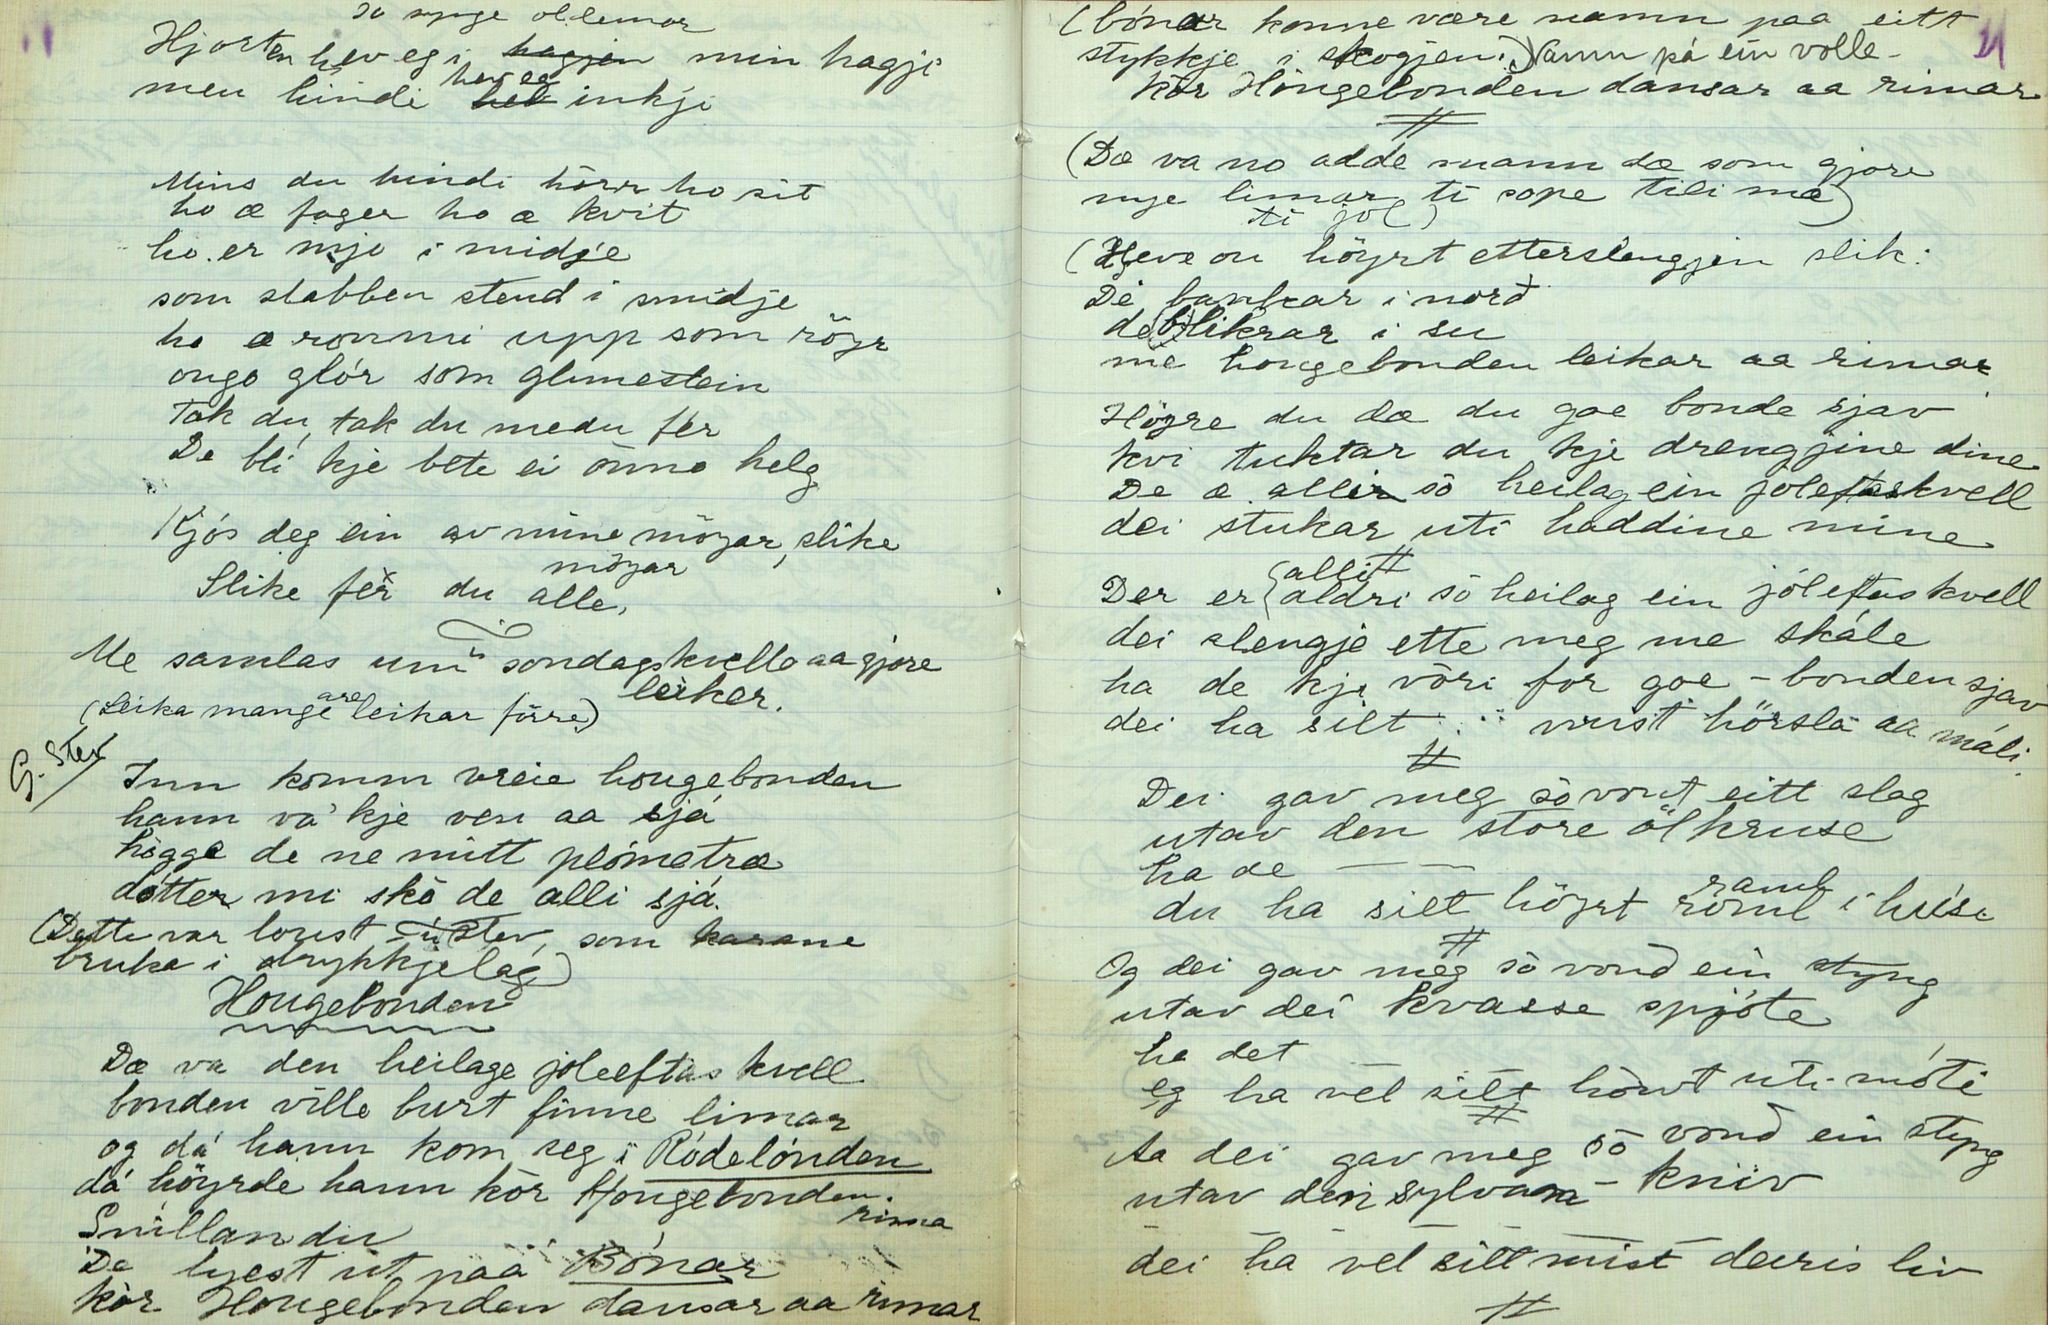 so synge ollemor
Hjorten hev eg i hagjen min hagji
men hindi hev eg hek inkji
Mins du hindi hörr ho sit
ho æ fager ho æ kvit
ho er mjo i midje
som stabben stend i smidje
ho æ ronni upp som röyr
ongo glór som glimestein
Tak du, tak du medu fèr
De bli kje bete ei önno helg
Kjós deg ein av mine möyar, slike
möyar
Slike fèr du alle,
Me samlas um sondagskvello aa gjøre
leiker.
(Leika mange are leikar förre)
G. Stev
Inn komm vreie hougebonden
hann va' kje ven aa sjá
högge de ne mitt plómetræ
dótter mi skò de alli sjá.
(Dette var loust i stev, som karane
bruka i drykkjelag)
Hougebonden
Dæ va den heilage joleeftas kvell
bonden ville burt finne limar
og dá hann kom seg i Ródelónden
dá höyrde hann kòr Hougebonden
rima
Snillan du
De lyest ut paa Bónar
kòr Hougebonden dansar aa rimar
(bónar konne være namn paa eitt
stykkje i skogjen.) Namn på ein volle
21
kòr Hougebonden dansar aa rimar
(Dæ va no adde mann dæ som gjore
mye limar ti sope tili mæ)
ti jol)
(Heve on höyrt etterslengjen slik:
De bankar i norð
de (b)likrar i su
me hougebonden leikar aa rimar
Höyre du dæ du goe bonde sjav
kvi tuktar du kje drengjine dine
De æ allir sò heilag ein joleftaskvell
dei stukar uti haddine mine
Der er (alli
aldri sò heilag ein jóleftaskvell
dei slengje ette meg me skåle
ha de kje vòri for goe-bonden sjav
dei ha silt mist hörsla aa máli.
Dei gav meg sò vont eitt slag
utav den store ölkruse
ha de — —
du ha silt höyrt raml
roml i húse
Og dei gav meg sò vond ein styng
utav dei kvasse spjóte
ha det
eg ha vel silt höwt uti móti
Aa dei gav meg sò vond ein styng
utav den sylvan-kniv
— — —
dei ha vel silt mist deiris liv